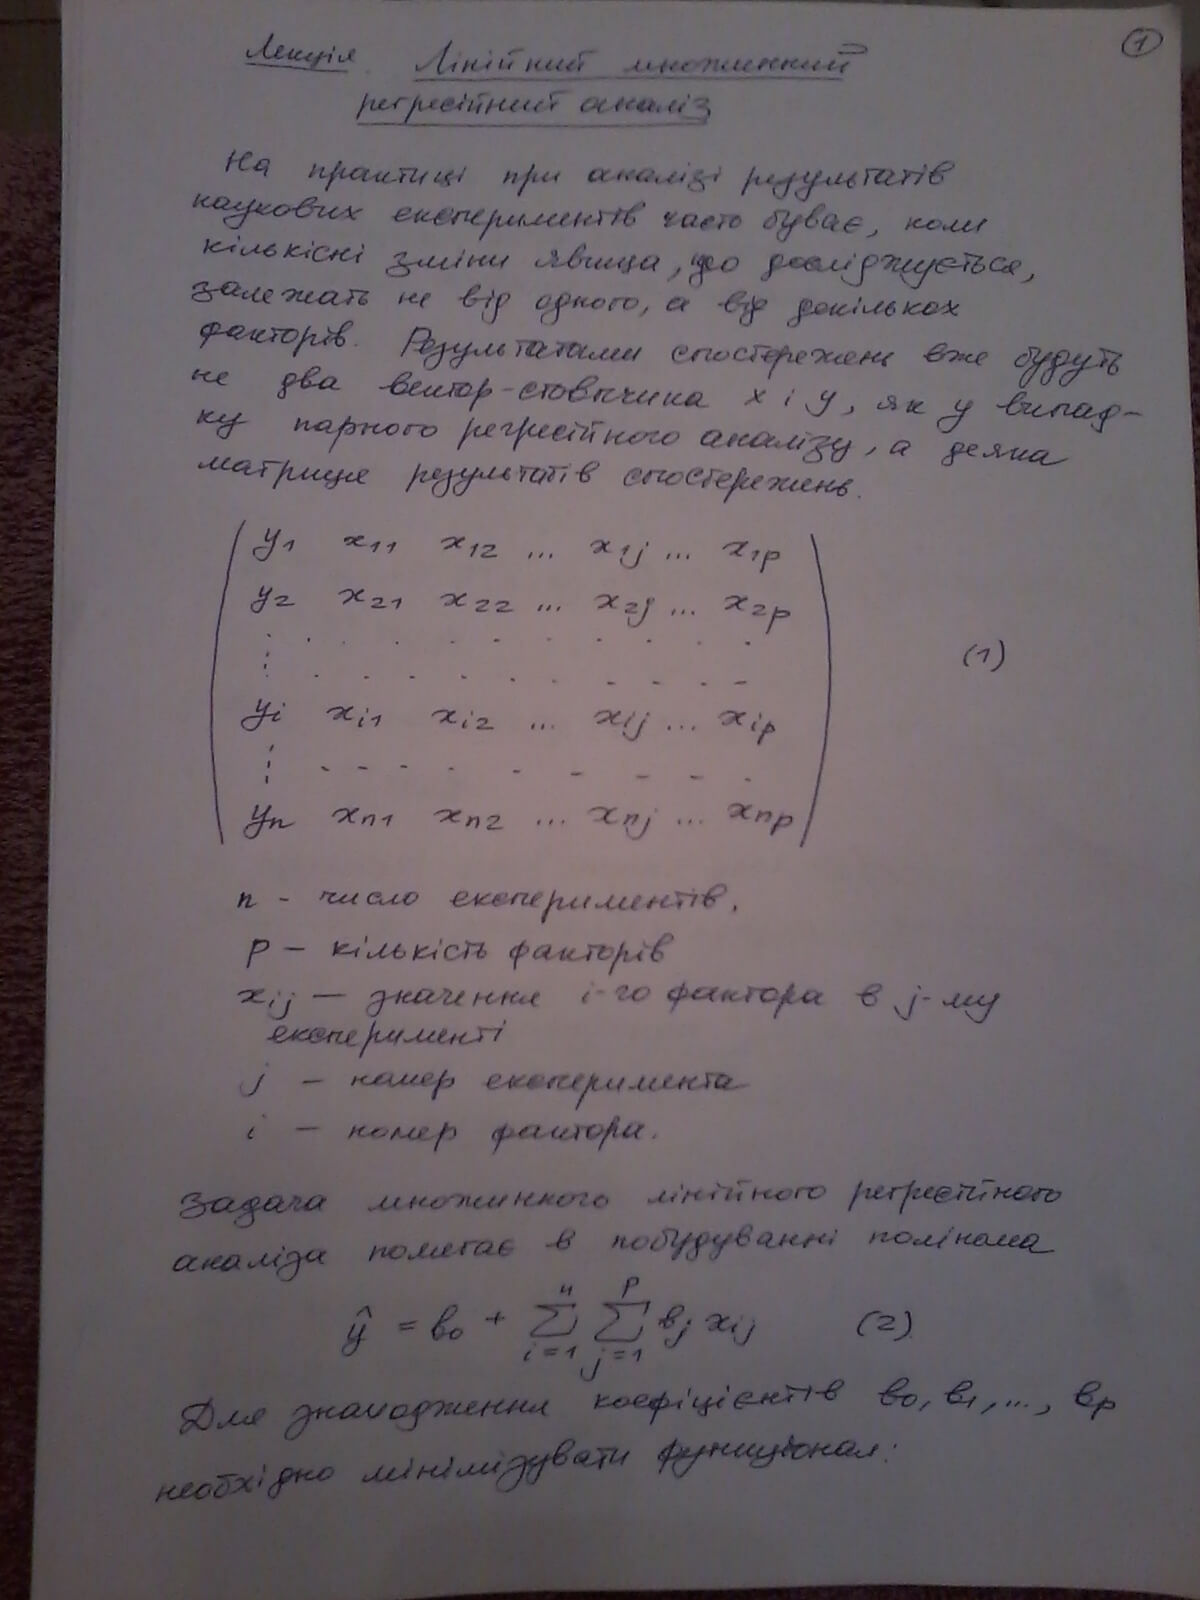 1
Лекція. Лінійний множинний
регресійний аналіз
На практиці при аналізі результатів
наукових експериментів часто буває, коли
кількісні зміни явища, що досліджується,
залежать не від одного, а від декількох
факторів. Результатами спостережень вже будуть
не два вектор-стовпчика x і y, як у випад-
ку парного регресійного аналізу, а деяка
матриця результатів спостережень.
y1 x11 x12 ... x1j ... x1p
y2 x21 x22 ... x2j ... x2p
(1)
yi xi1 xi2 ... xij ... xip
yn xn1 xn2 ... xnj ... xnp
n - число експериментів.
p – кількість факторів
xij – значення i-го фактора в j-му
експерименті
j – номер експеримента
i – номер фактора.
Задача множинного лінійного регресійного
аналіза полягає в побудуванні полінома
ŷ = b0 + Σ(i=1..n) Σ(j=1..p) bj xij (2)
Для знаходження коефіцієнтів b0, b1, ..., bp
необхідно мінімізувати функціонал: